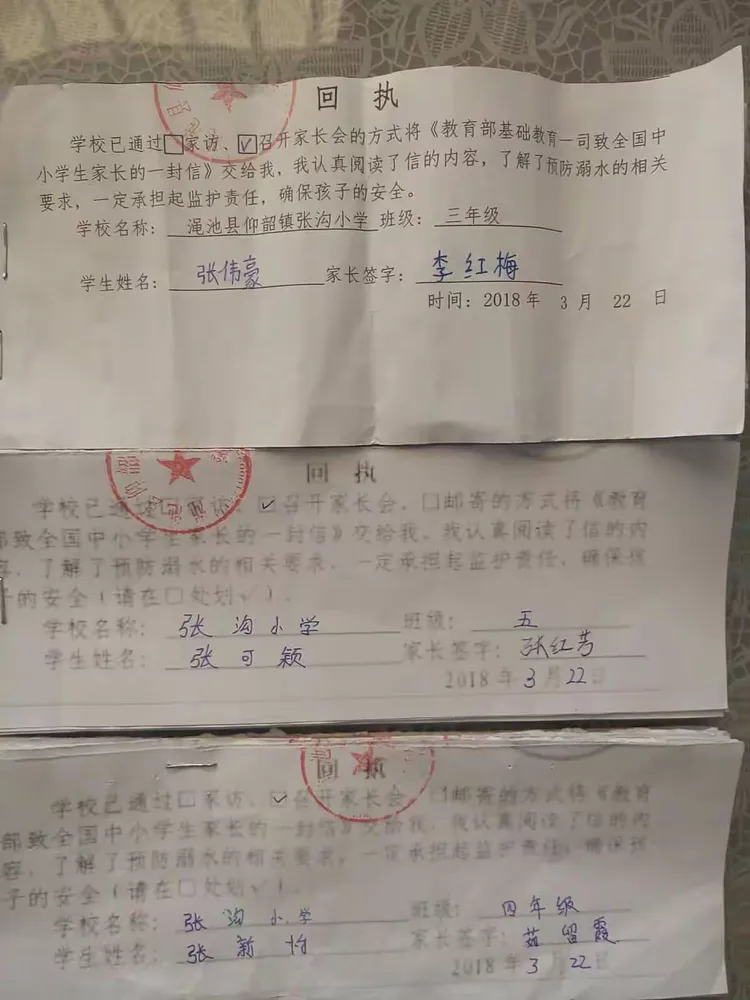 回 执
学校已通过□家访、☑召开家长会的方式将《教育部基础教育一司致全国中
小学生家长的一封信》交给我，我认真阅读了信的内容，了解了预防溺水的相关
要求，一定承担起监护责任，确保孩子的安全。
学校名称： 渑池县仰韶镇张沟小学 班级： 三年级
学生姓名： 张伟豪 家长签字： 李红梅
时间：2018 年 3 月 22 日
回 执
学校已通过□家访、☑召开家长会、□邮寄的方式将《教育
部致全国中小学生家长的一封信》交给我。我认真阅读了信的内
容，了解了预防溺水的相关要求，一定承担起监护责任，确保孩
子的安全（请在□处划√）。
学校名称： 张沟小学 班级： 五
学生姓名： 张可颖 家长签字： 张红芳
2018 年 3 月 22 日
回 执
学校已通过□家访、☑召开家长会、□邮寄的方式将《教育
部致全国中小学生家长的一封信》交给我，我认真阅读了信的内
容，了解了预防溺水的相关要求，一定承担起监护责任，确保孩
子的安全（请在□处划√）。
学校名称： 张沟小学 班级： 四年级
学生姓名： 张新怡 家长签字： 茹留霞
2018 年 3 月 22 日